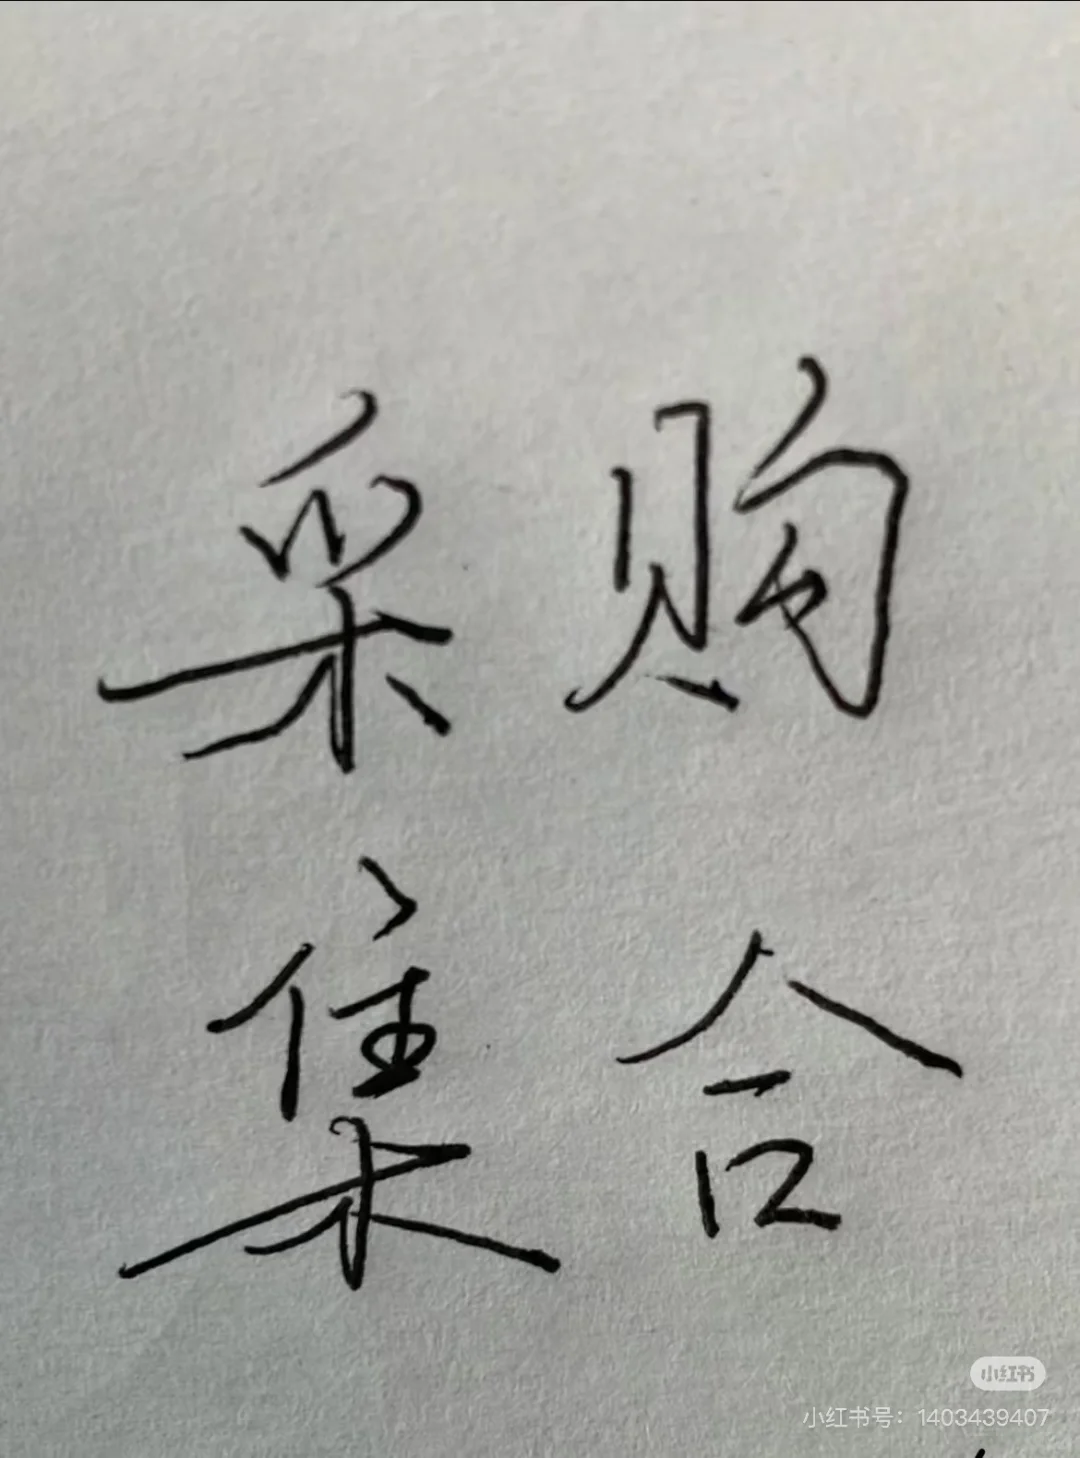 采购
集合
小红书
小红书号：1403439407